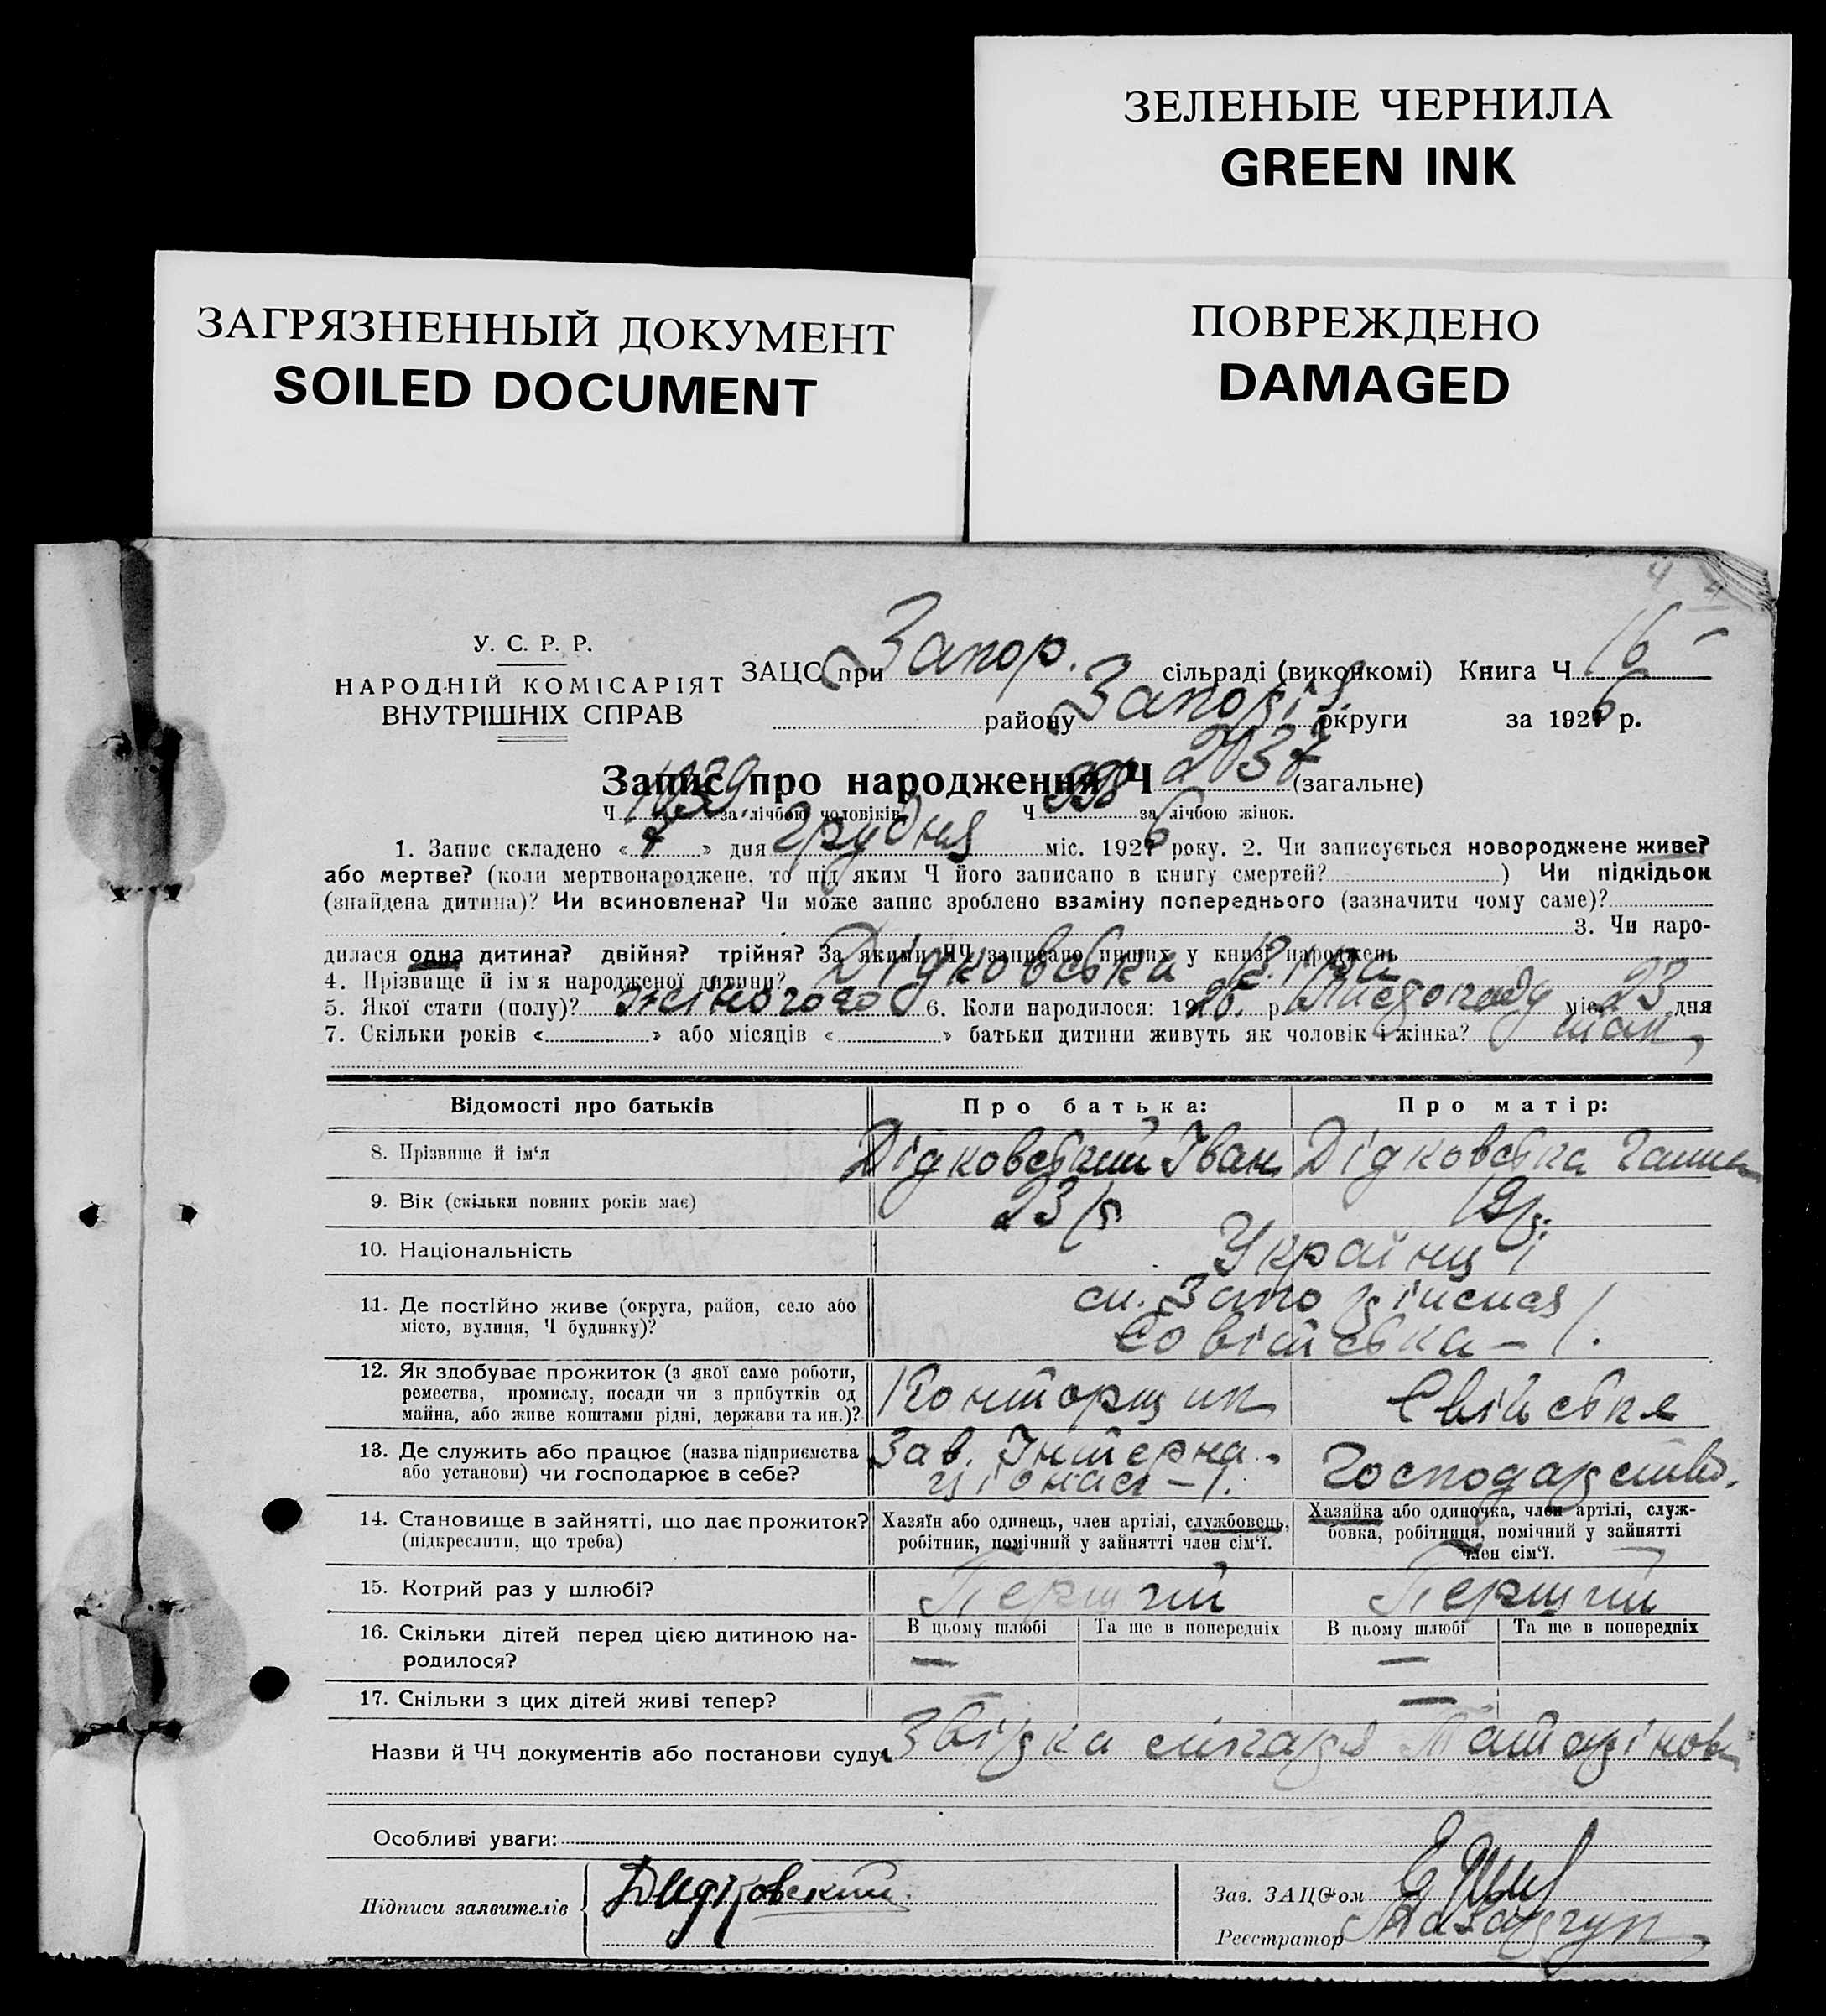 ЗЕЛЕНЫЕ ЧЕРНИЛА
GREEN INK
ЗАГРЯЗНЕННЫЙ ДОКУМЕНТ
SOILED DOCUMENT
ПОВРЕЖДЕНО
DAMAGED
4 4
У. С. Р. Р.
НАРОДНІЙ КОМІСАРІЯТ
ВНУТРІШНІХ СПРАВ
ЗАЦС при Запор. сільраді (виконкомі) Книга Ч 16
району Запоріз. округи за 1926 р.
Запис про народження Ч 2037 (загальне)
Ч 1039 за лічбою чоловіків Ч 998 за лічбою жінок.
1. Запис складено « 7 » дня Грудня міс. 1926 року. 2. Чи записується новороджене живе?
або мертве? (коли мертвонароджене, то під яким Ч його записано в книгу смертей? ) Чи підкідьок
(знайдена дитина)? Чи всиновлена? Чи може запис зроблено взаміну попереднього (зазначити чому саме)?
3. Чи наро-
дилася одна дитина? двійня? трійня? За якими ЧЧ записано инших у книзі народжень
4. Прізвище й ім'я народженої дитини? Дідковська Віра
5. Якої стати (полу)? жіночого 6. Коли народилося: 1926. р. Листопаду міс. 23 дня
7. Скільки років « » або місяців « » батьки дитини живуть як чоловік і жінка? так
Відомості про батьків
Про батька:
Про матір:
8. Прізвище й ім'я Дідковський Іван Дідковська Ганна
9. Вік (скільки повних років має) 23 р. 19 р.
10. Національність Українці
11. Де постійно живе (округа, район, село або
місто, вулиця, Ч будинку)?
ст. Запоріжжя
Совітська – 1.
12. Як здобуває прожиток (з якої саме роботи,
ремества, промислу, посади чи з прибутків од
майна, або живе коштами рідні, держави та ин.)?
Конторщик
Свійське
13. Де служить або працює (назва підприємства
або установи) чи господарює в себе?
Зав. Інтерна-
ціонал – 1.
Господарство.
14. Становище в зайнятті, що дає прожиток?
(підкреслити, що треба)
Хазяїн або одинець, член артілі, службовець,
робітник, помічний у зайнятті член сім'ї.
Хазяйка або одиночка, член артілі, служ-
бовка, робітниця, помічний у зайнятті
член сім'ї.
15. Котрий раз у шлюбі? Перший Перший
16. Скільки дітей перед цією дитиною на-
родилося?
В цьому шлюбі Та ще в попередніх В цьому шлюбі Та ще в попередніх
— —
17. Скільки з цих дітей живі тепер? — —
Назви й ЧЧ документів або постанови суду: Звідка лікаря
Особливі уваги:
Підписи заявителів Дидковский
Зав. ЗАЦС'ом
Реєстратор